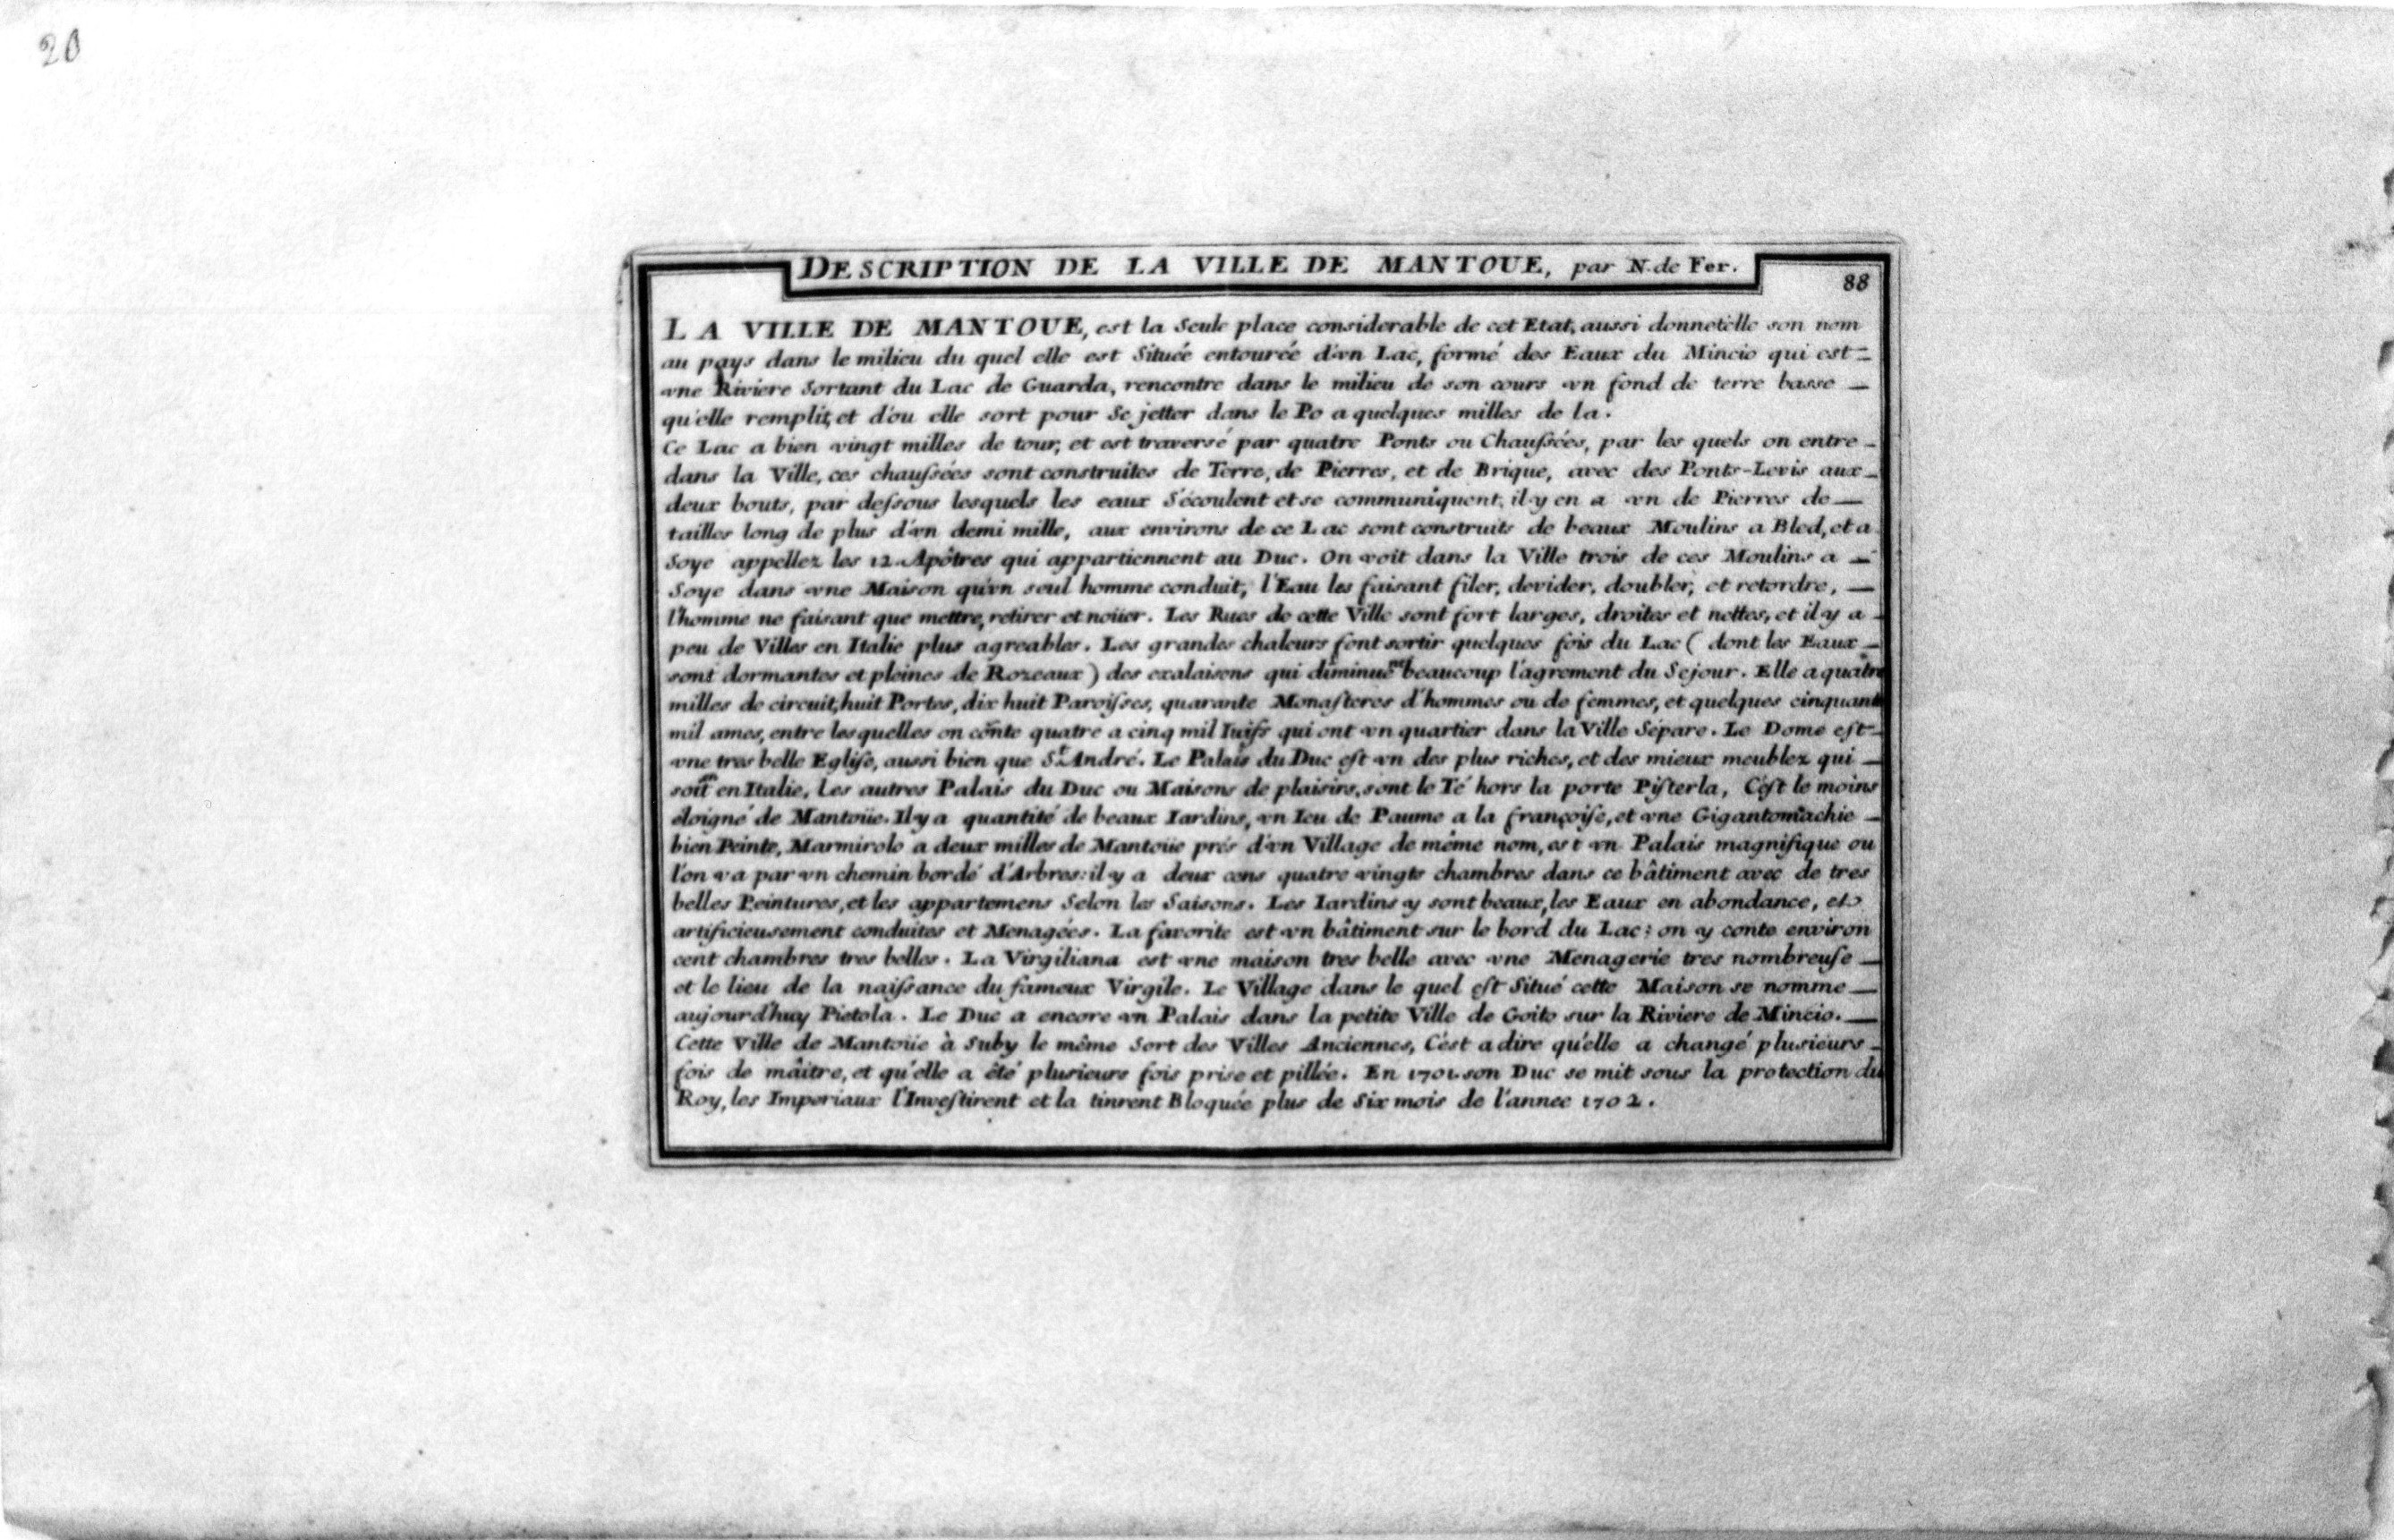 20
DESCRIPTION DE LA VILLE DE MANTOUE, par N. de Fer.
88
LA VILLE DE MANTOUE, est la Seule place considerable de cet Etat, aussi donnetèlle son nom
au pays dans le milieu du quel elle est Située entourée d'vn Lac, formé des Eaux du Mincio qui est =
vne Riviere Sortant du Lac de Guarda, rencontre dans le milieu de son cours vn fond de terre basse —
qu'elle remplit, et d'ou elle sort pour Se jetter dans le Po a quelques milles de la.
Ce Lac a bien vingt milles de tour, et est traversé par quatre Ponts ou Chauſsées, par les quels on entre -
dans la Ville, ces chauſsées sont construites de Terre, de Pierres, et de Brique, avec des Ponts-Levis aux -
deux bouts, par deſsous lesquels les eaux S'écoulent et se communiquent, il y en a vn de Pierres de —
tailles long de plus d'vn demi mille, aux environs de ce Lac sont construits de beaux Moulins a Bled, et a
Soye appellez les 12. Apôtres qui appartiennent au Duc. On voit dans la Ville trois de ces Moulins a —
Soye dans vne Maison qu'vn seul homme conduit, l'Eau les faisant filer, devider, doubler, et retordre, —
l'homme ne faisant que mettre, retirer et noüer. Les Rues de cette Ville sont fort larges, droites et nettes, et il y a -
peu de Villes en Italie plus agreables. Les grandes chaleurs font sortir quelques fois du Lac ( dont les Eaux -
sont dormantes et pleines de Rozeaux ) des exalaisons qui diminuent beaucoup l'agrement du Sejour. Elle a quatre
milles de circuit, huit Portes, dix huit Paroiſses, quarante Monaſteres d'hommes ou de femmes, et quelques cinquante
mil ames, entre lesquelles on cônte quatre a cinq mil Iuifs qui ont vn quartier dans la Ville Sépare. Le Dome eſt -
vne tres belle Egliſe, aussi bien que St. André. Le Palais du Duc eſt vn des plus riches, et des mieux meublez qui —
soit en Italie, Les autres Palais du Duc ou Maisons de plaisirs, sont le Té hors la porte Piſterla, C'eſt le moins
éloigné de Mantoüe. Il y a quantité de beaux Iardins, vn Ieu de Paume a la françoiſe, et vne Gigantomachie —
bien Peinte, Marmirolo a deux milles de Mantoüe prés d'vn Village de même nom, est vn Palais magnifique ou
l'on va par vn chemin bordé d'Arbres: il y a deux cens quatre vingts chambres dans ce bâtiment avec de tres
belles Peintures, et les appartemens Selon les Saisons. Les Iardins y sont beaux, les Eaux en abondance, et
artificieusement conduites et Menagées. La favorite est vn bâtiment sur le bord du Lac: on y conte environ
cent chambres tres belles. La Virgiliana est vne maison tres belle avec vne Menagerie tres nombreuſe —
et le lieu de la naiſsance du fameux Virgile. Le Village dans le quel eſt Situé cette Maison se nomme —
aujourd'huy Pietola. Le Duc a encore vn Palais dans la petite Ville de Goito sur la Riviere de Mincio. —
Cette Ville de Mantoüe à Suby le même Sort des Villes Anciennes, C'est a dire qu'elle a changé plusieurs -
fois de mâitre, et qu'elle a êté plusieurs fois prise et pillée. En 1701. son Duc se mit sous la protection du
Roy, les Imperiaux l'Inveſtirent et la tinrent Bloquée plus de Six mois de l'annee 1702.